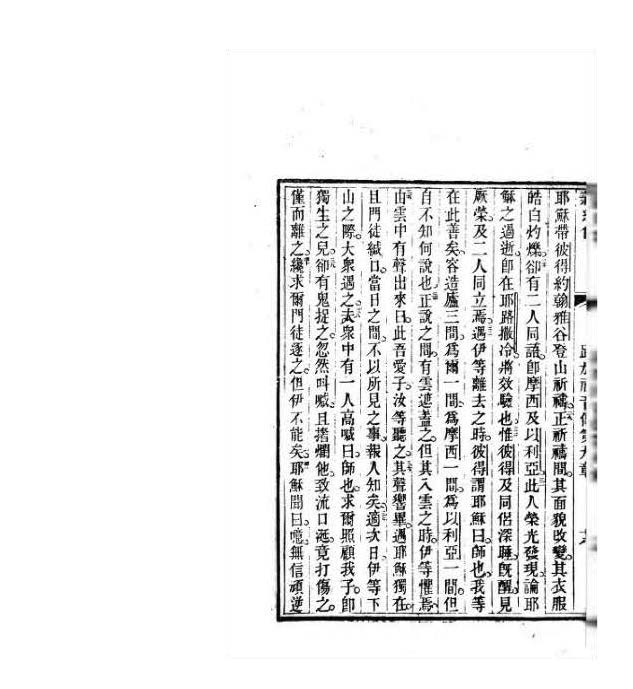 耶穌帶彼得約翰雅谷登山祈禱。正祈禱間。其面貌改變。其衣服
皓白灼爍。卻有二人同語。卽摩西及以利亞。此人榮光發現。論耶
穌之過逝。卽在耶路撒冷將效驗也。惟彼得及同侶深睡。旣醒。見
厥榮。及二人同立焉。遇伊等離去之時。彼得謂耶穌曰。師也。我等
在此善矣。容造廬三間。爲爾一間。爲摩西一間。爲以利亞一間。但
自不知何說也。正說之間。有雲遮蓋之。但其入雲之時。伊等懼焉。
由雲中有聲出來曰。此吾愛子。汝等聽之。其聲響畢。遇耶穌獨在。
且門徒緘口。當日之間。不以所見之事。報人知矣。適次日。伊等下
山之際。大衆遇之。夫衆中有一人高喊曰。師也。求爾照顧我子。卽
獨生之兒。卻有鬼捉之。忽然叫喊。且搭爛他。致流口涎。竟打傷之。
僅而離之。纔求爾門徒逐之。但伊不能矣。耶穌聞曰。噫。無信頑逆